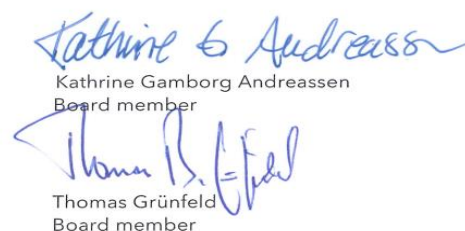 Kathrine G Andreassen
Kathrine Gamborg Andreassen
Board member
Thomas B. Grünfeld
Thomas Grünfeld
Board member